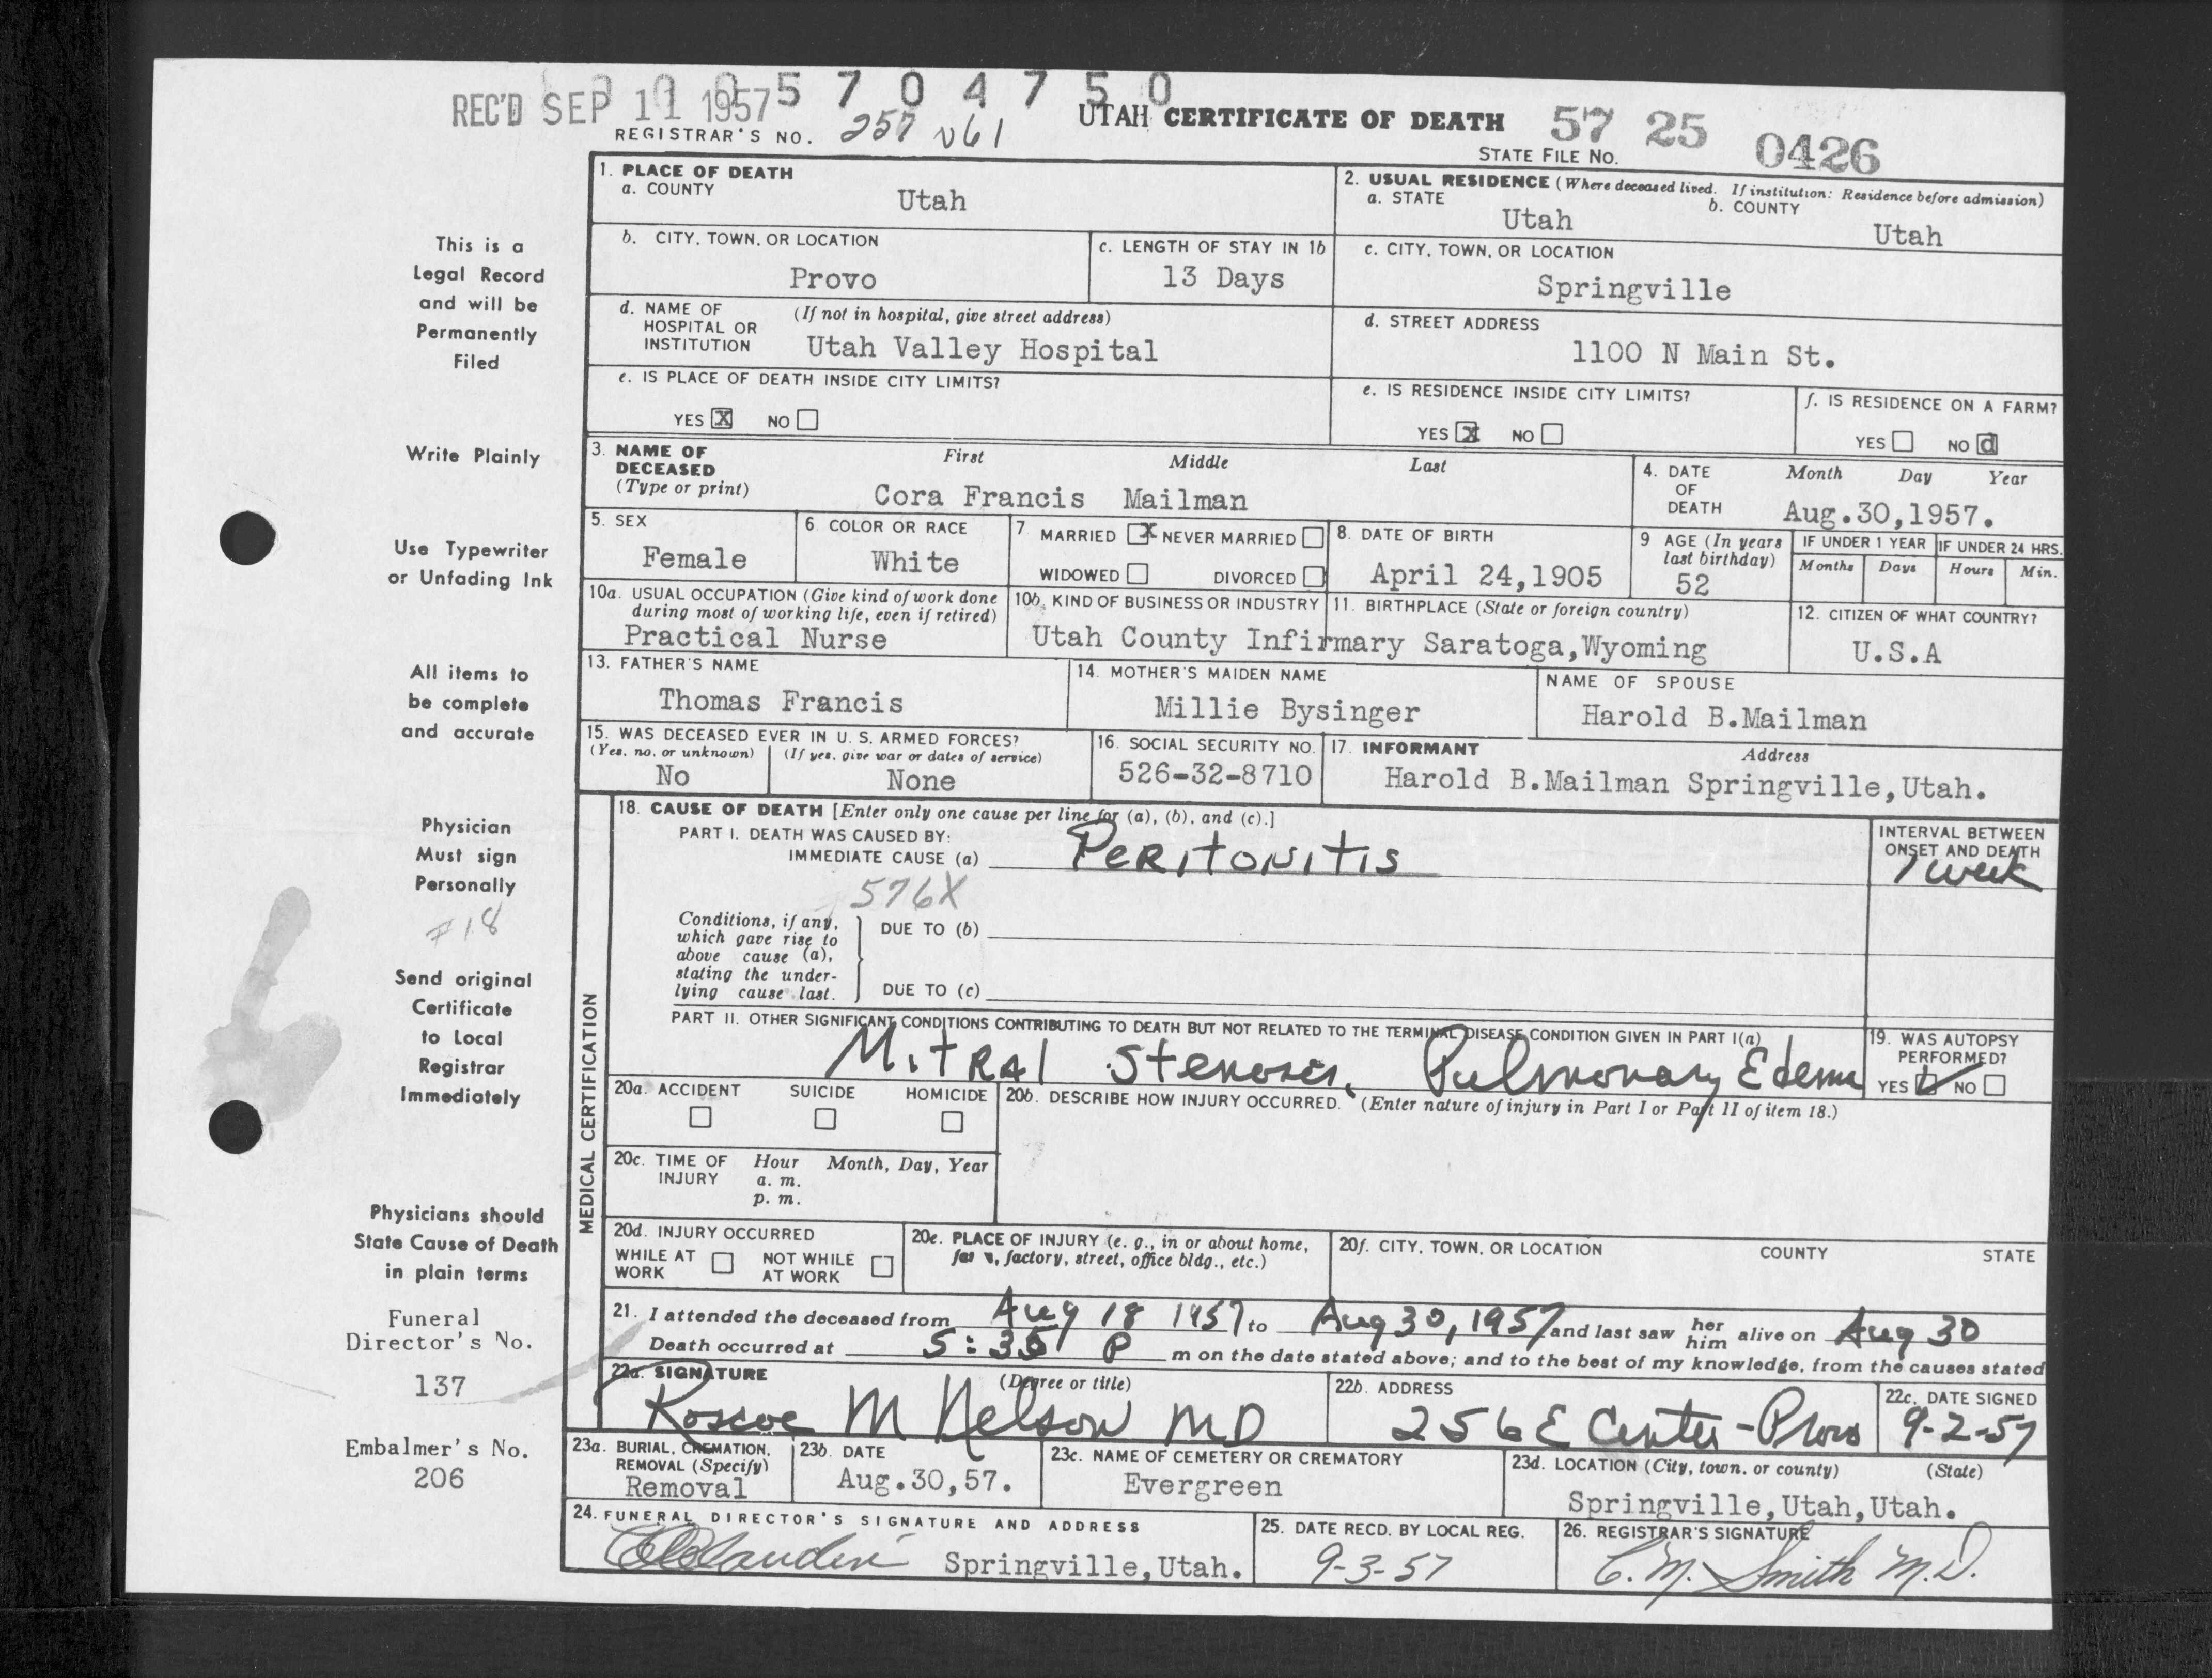 REC'D SEP 11 1957
5 7 0 4 7 5 0
REGISTRAR'S NO. 257 V61
UTAH CERTIFICATE OF DEATH 57 25 0426
STATE FILE NO.
1. PLACE OF DEATH
a. COUNTY
Utah
2. USUAL RESIDENCE (Where deceased lived. If institution: Residence before admission)
a. STATE
Utah
b. COUNTY
Utah
b. CITY, TOWN, OR LOCATION
Provo
c. LENGTH OF STAY IN 1b
13 Days
c. CITY, TOWN, OR LOCATION
Springville
d. NAME OF HOSPITAL OR INSTITUTION
(If not in hospital, give street address)
Utah Valley Hospital
d. STREET ADDRESS
1100 N Main St.
e. IS PLACE OF DEATH INSIDE CITY LIMITS?
YES X NO
e. IS RESIDENCE INSIDE CITY LIMITS?
YES X NO
f. IS RESIDENCE ON A FARM?
YES NO d
3. NAME OF DECEASED
(Type or print)
First Middle Last
Cora Francis Mailman
4. DATE OF DEATH
Month Day Year
Aug.30,1957.
5. SEX
Female
6. COLOR OR RACE
White
7 MARRIED X NEVER MARRIED
WIDOWED DIVORCED
8. DATE OF BIRTH
April 24,1905
9 AGE (In years last birthday)
52
IF UNDER 1 YEAR
Months Days
IF UNDER 24 HRS.
Hours Min.
10a. USUAL OCCUPATION (Give kind of work done
during most of working life, even if retired)
Practical Nurse
10b. KIND OF BUSINESS OR INDUSTRY
Utah County Infirmary
11. BIRTHPLACE (State or foreign country)
Saratoga,Wyoming
12. CITIZEN OF WHAT COUNTRY?
U.S.A
13. FATHER'S NAME
Thomas Francis
14. MOTHER'S MAIDEN NAME
Millie Bysinger
NAME OF SPOUSE
Harold B.Mailman
15. WAS DECEASED EVER IN U. S. ARMED FORCES?
(Yes, no, or unknown) (If yes, give war or dates of service)
No None
16. SOCIAL SECURITY NO.
526-32-8710
17. INFORMANT Address
Harold B.Mailman Springville,Utah.
MEDICAL CERTIFICATION
18. CAUSE OF DEATH [Enter only one cause per line for (a), (b), and (c).]
PART I. DEATH WAS CAUSED BY:
IMMEDIATE CAUSE (a) PERITONITIS
INTERVAL BETWEEN
ONSET AND DEATH
1 week
576X
Conditions, if any,
which gave rise to
above cause (a),
stating the under-
lying cause last.
DUE TO (b)
DUE TO (c)
PART II. OTHER SIGNIFICANT CONDITIONS CONTRIBUTING TO DEATH BUT NOT RELATED TO THE TERMINAL DISEASE CONDITION GIVEN IN PART I(a)
Mitral Stenosis, Pulmonary Edema
19. WAS AUTOPSY
PERFORMED?
YES ✓ NO
20a. ACCIDENT SUICIDE HOMICIDE
20b. DESCRIBE HOW INJURY OCCURRED. (Enter nature of injury in Part I or Part II of item 18.)
20c. TIME OF INJURY
Hour Month, Day, Year
a. m.
p. m.
20d. INJURY OCCURRED
WHILE AT WORK NOT WHILE AT WORK
20e. PLACE OF INJURY (e. g., in or about home,
factory, street, office bldg., etc.)
20f. CITY, TOWN, OR LOCATION COUNTY STATE
21. I attended the deceased from Aug 18 1957 to Aug 30, 1957 and last saw her him alive on Aug 30
Death occurred at 5:35 P m on the date stated above; and to the best of my knowledge, from the causes stated
22a. SIGNATURE (Degree or title)
Roscoe M Nelson MD
22b. ADDRESS
256 E Center - Provo
22c. DATE SIGNED
9-2-57
23a. BURIAL, CREMATION,
REMOVAL (Specify)
Removal
23b. DATE
Aug.30,57.
23c. NAME OF CEMETERY OR CREMATORY
Evergreen
23d. LOCATION (City, town, or county) (State)
Springville,Utah,Utah.
24. FUNERAL DIRECTOR'S SIGNATURE AND ADDRESS
Springville,Utah.
25. DATE RECD. BY LOCAL REG.
9-3-57
26. REGISTRAR'S SIGNATURE
C. M. Smith M.D.
This is a
Legal Record
and will be
Permanently
Filed
Write Plainly
Use Typewriter
or Unfading Ink
All items to
be complete
and accurate
Physician
Must sign
Personally
Send original
Certificate
to Local
Registrar
Immediately
Physicians should
State Cause of Death
in plain terms
Funeral
Director's No.
137
Embalmer's No.
206